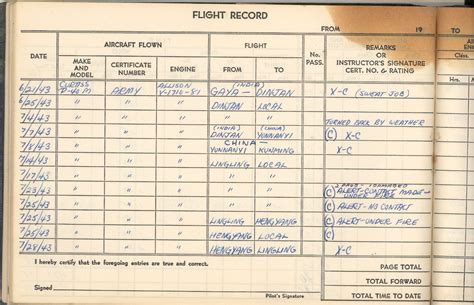 FLIGHT RECORD
FROM 19 TO
DATE AIRCRAFT FLOWN FLIGHT No. PASS. REMARKS OR INSTRUCTOR'S SIGNATURE CERT. NO. & RATING
MAKE AND MODEL CERTIFICATE NUMBER ENGINE FROM TO Hrs.
6/21/43 CURTISS P-40M ARMY ALLISON V-1710-81 GAYA (INDIA) DINJAN X-C (SWEAT JOB)
6/25/43 " " " DINJAN LOCAL
7/4/43 " " " " " TURNED BACK BY WEATHER
7/4/43 " " " (INDIA) DINJAN (CHINA) YUNNANYI (C) X-C
7/4/43 " " " CHINA YUNNANYI KUNMING X-C
7/14/43 " " " LINGLING LOCAL
7/17/43 " " " " "
7/23/43 " " " " " (C) ALERT-CONTACT MADE-UNDER FIRE
7/25/43 " " " " " (C) ALERT-NO CONTACT
7/25/43 " " " LINGLING HENGYANG (C) ALERT-UNDER FIRE
7/25/43 " " " HENGYANG LOCAL (C) "
7/28/43 " " " HENGYANG LINGLING X-C
I hereby certify that the foregoing entries are true and correct.
PAGE TOTAL
TOTAL FORWARD
Signed Pilot's Signature TOTAL TIME TO DATE